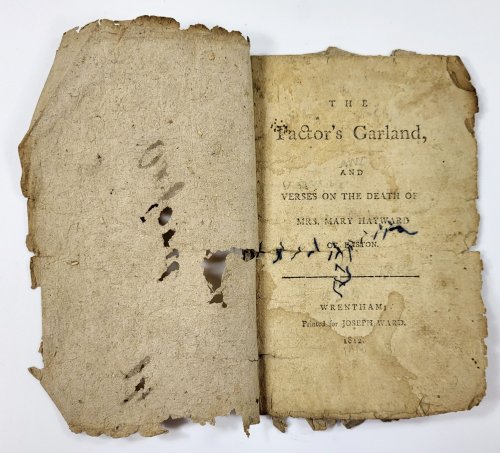 THE
Factor's Garland,
AND
VERSES ON THE DEATH OF
MRS. MARY HAYWARD
OF EASTON.
WRENTHAM;
Printed for JOSEPH WARD.
1812.